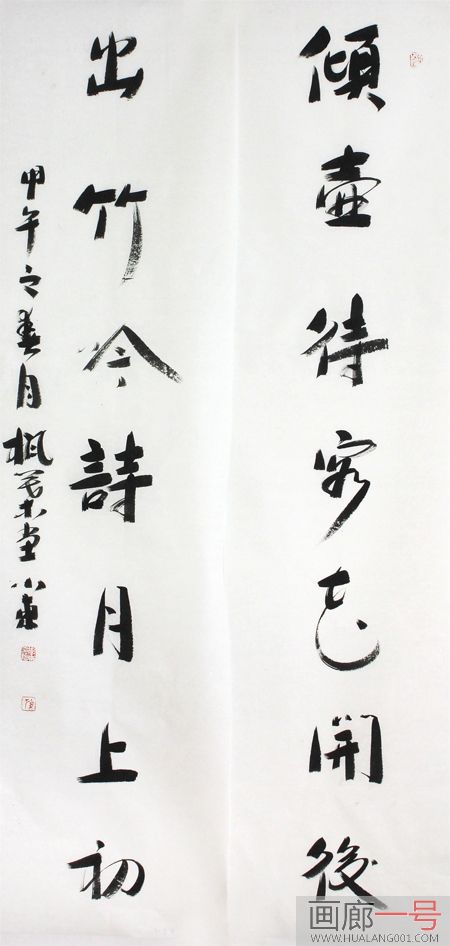 傾壺待客花開後
出竹吟詩月上初
甲午之春月楓葉堂小
画廊一号
WWW.HUALANG001.COM